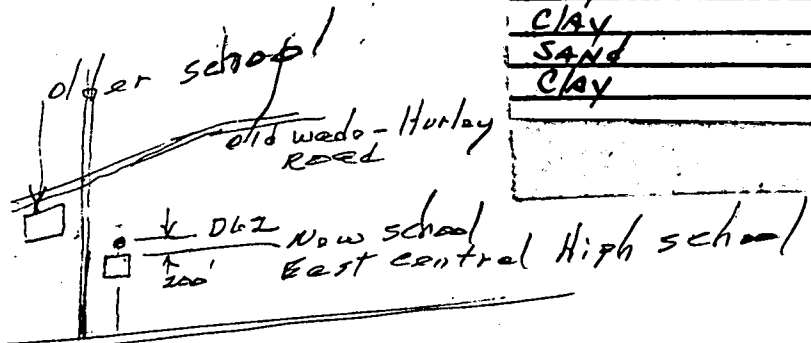 CLAY
SAND
CLAY
older school
old wade-Hurley
ROAD
New school
200'
East central High school